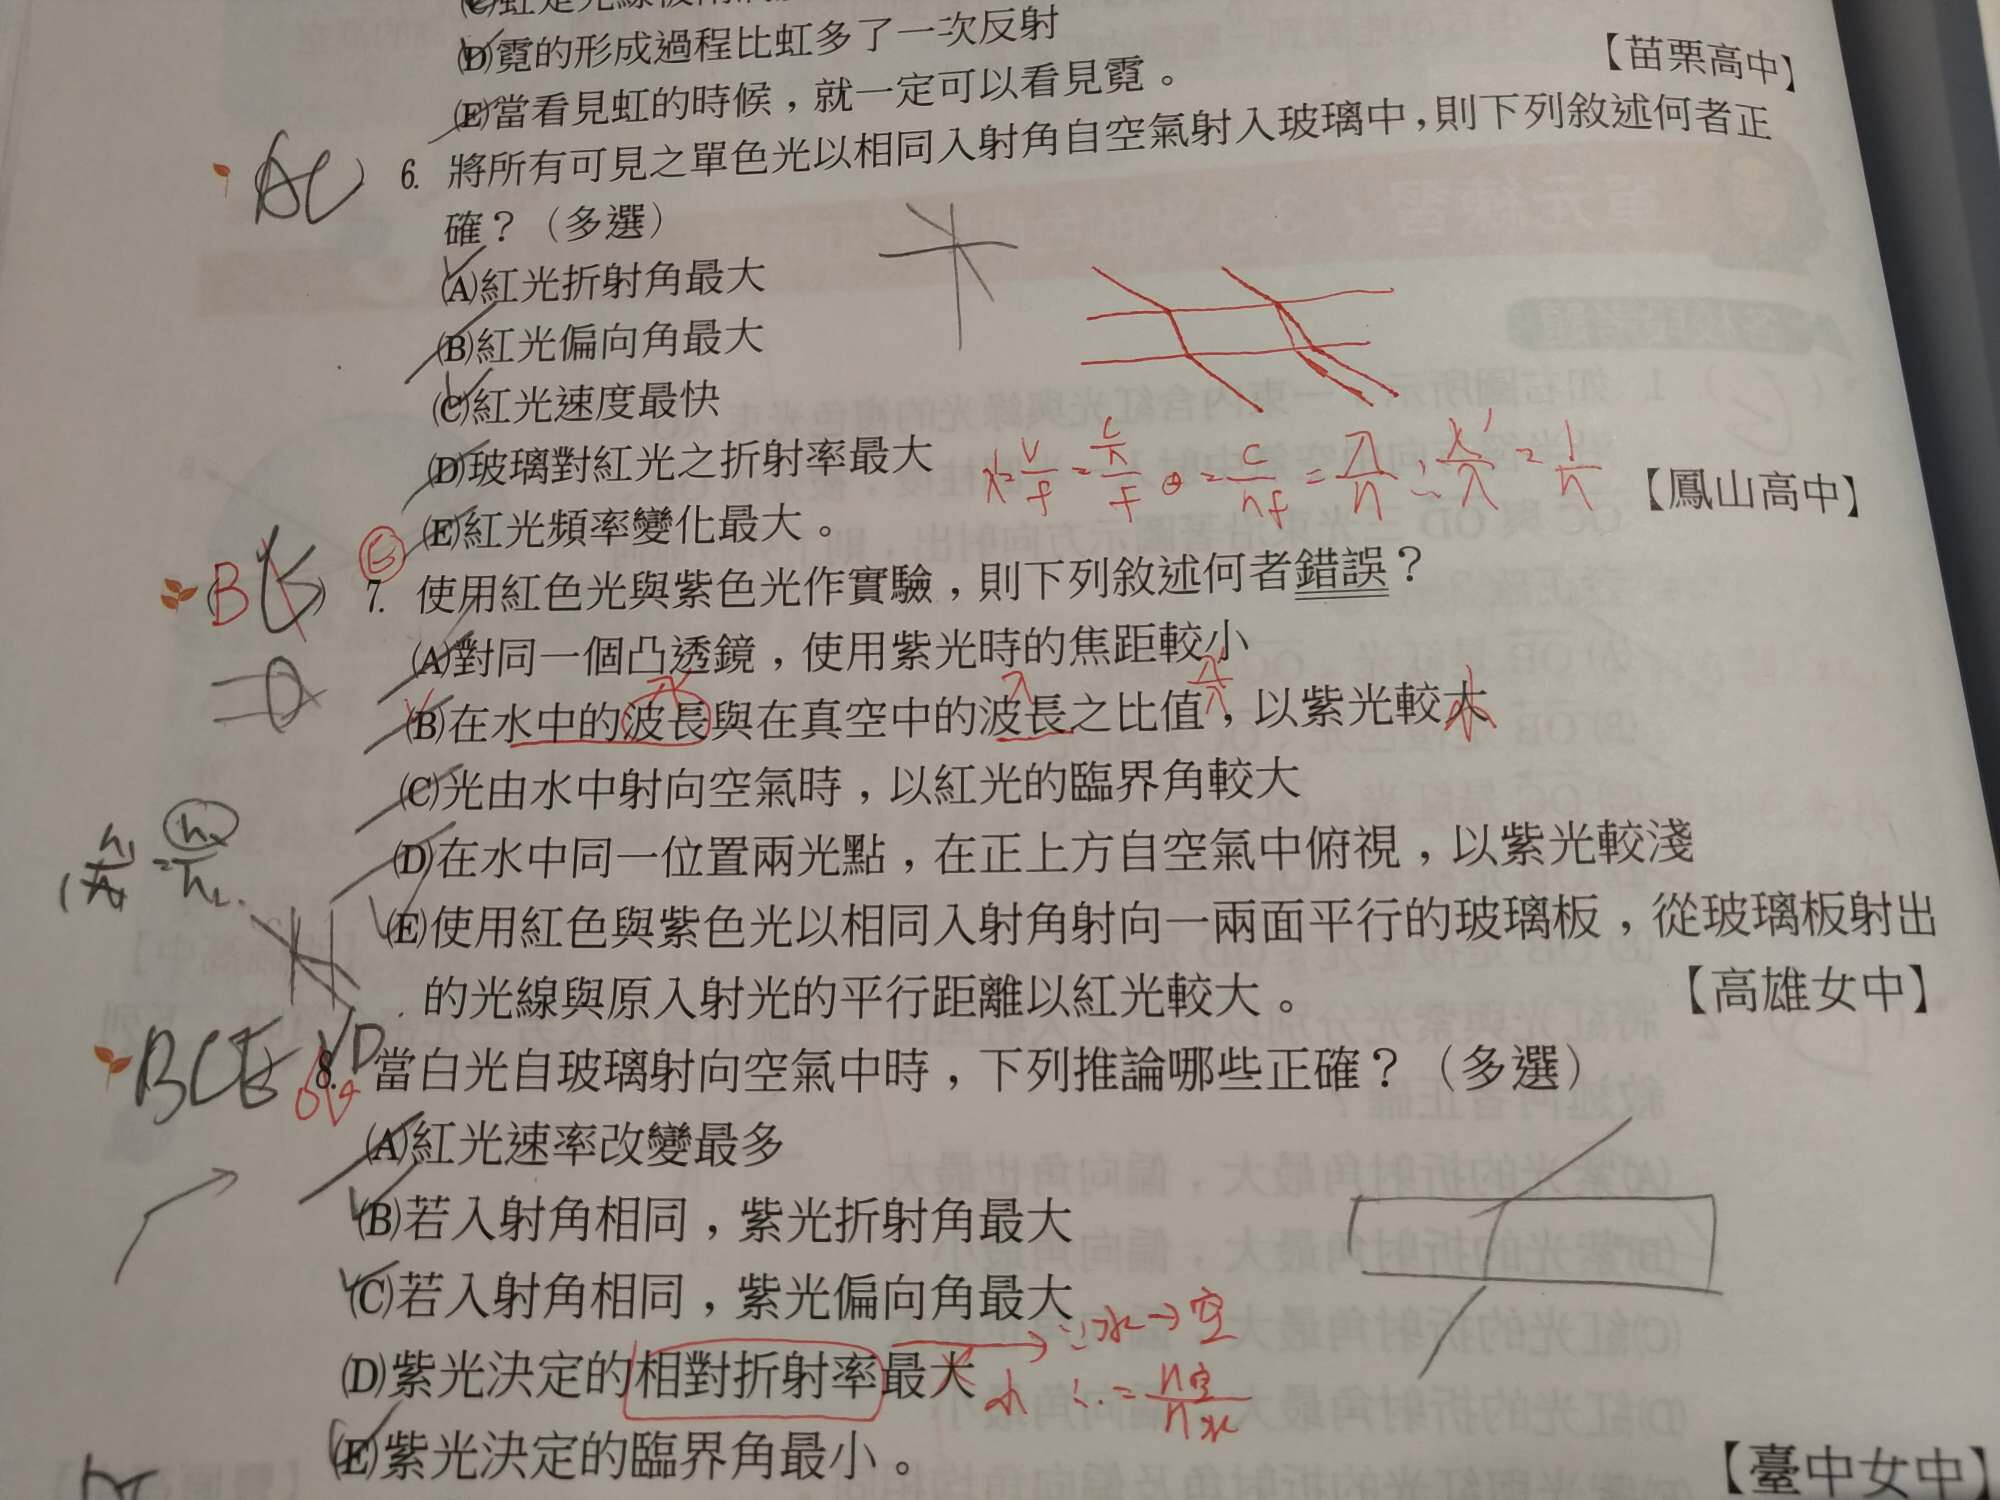 (D)霓的形成過程比虹多了一次反射
(E)當看見虹的時候，就一定可以看見霓。
【苗栗高中】
AC
6. 將所有可見之單色光以相同入射角自空氣射入玻璃中，則下列敘述何者正
確？（多選）
(A)紅光折射角最大
(B)紅光偏向角最大
(C)紅光速度最快
(D)玻璃對紅光之折射率最大
(E)紅光頻率變化最大。
【鳳山高中】
B
E
7. 使用紅色光與紫色光作實驗，則下列敘述何者錯誤？
(A)對同一個凸透鏡，使用紫光時的焦距較小
(B)在水中的波長與在真空中的波長之比值，以紫光較大
小
(C)光由水中射向空氣時，以紅光的臨界角較大
(D)在水中同一位置兩光點，在正上方自空氣中俯視，以紫光較淺
(E)使用紅色與紫色光以相同入射角射向一兩面平行的玻璃板，從玻璃板射出
的光線與原入射光的平行距離以紅光較大。
【高雄女中】
BCE
8. 當白光自玻璃射向空氣中時，下列推論哪些正確？（多選）
(A)紅光速率改變最多
(B)若入射角相同，紫光折射角最大
(C)若入射角相同，紫光偏向角最大
∵水→空
(D)紫光決定的相對折射率最大
小 ∴=n空/n水
(E)紫光決定的臨界角最小。
【臺中女中】